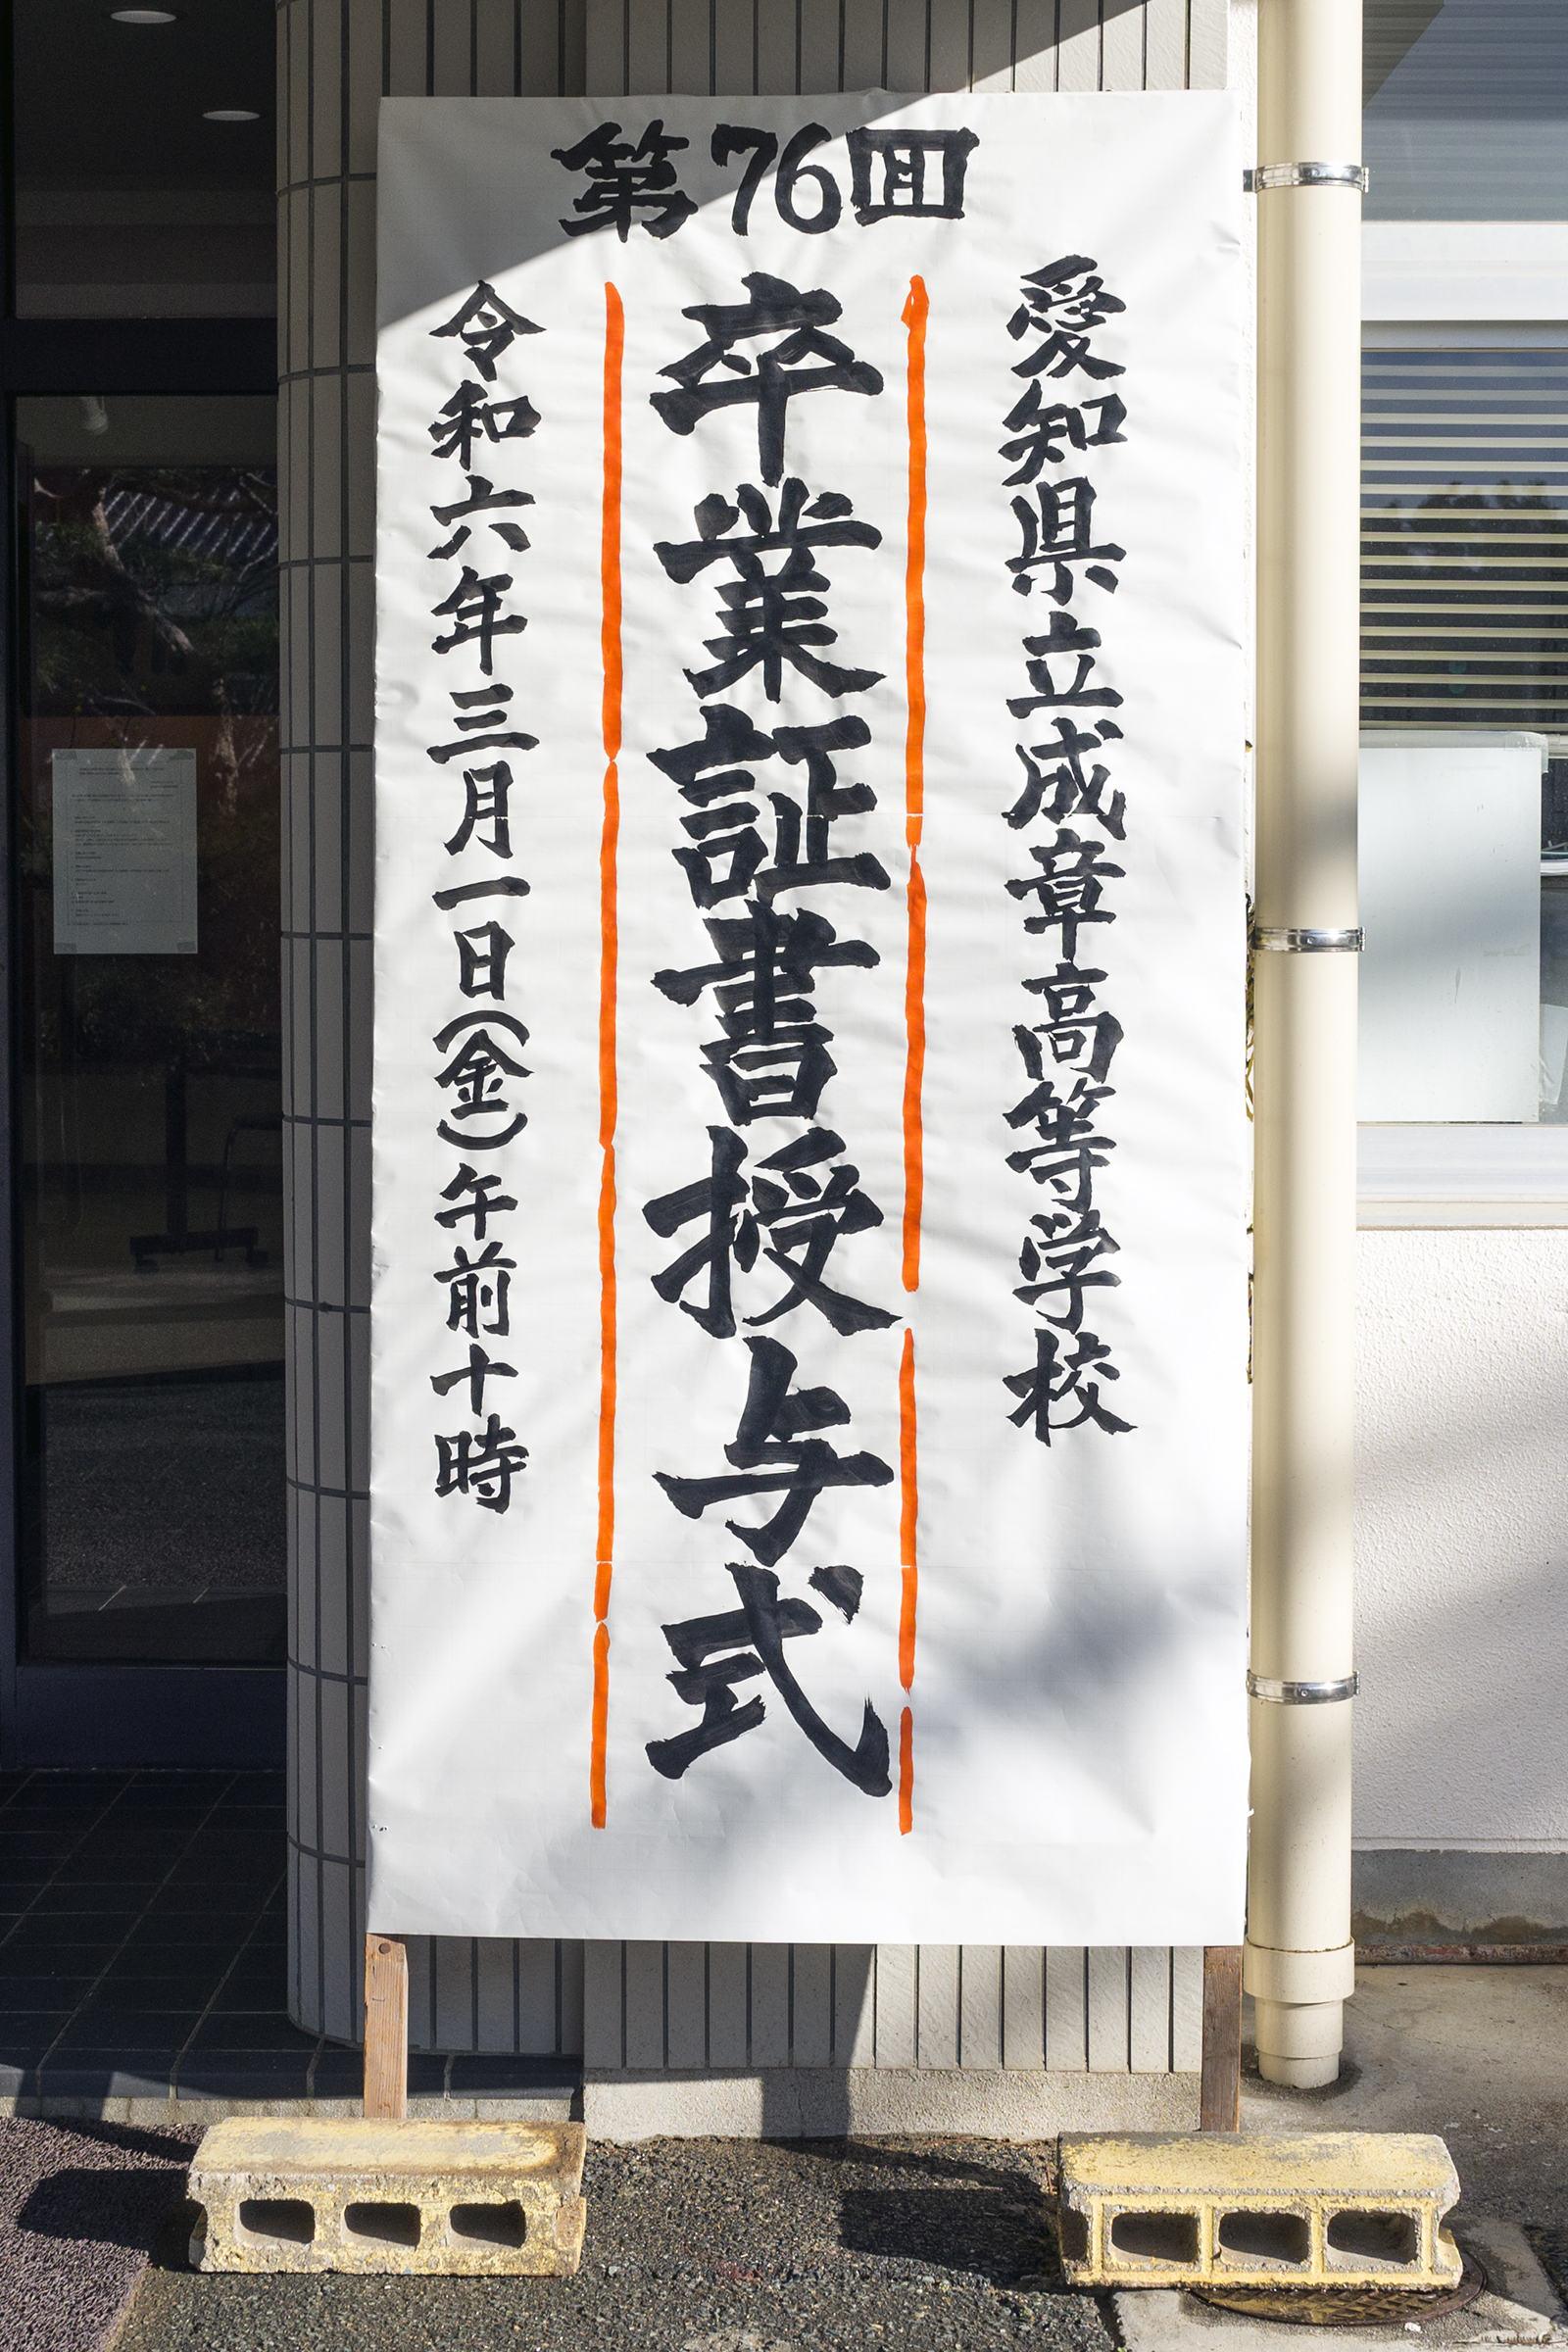 第76回
愛知県立成章高等学校
卒業証書授与式
令和六年三月一日(金)午前十時